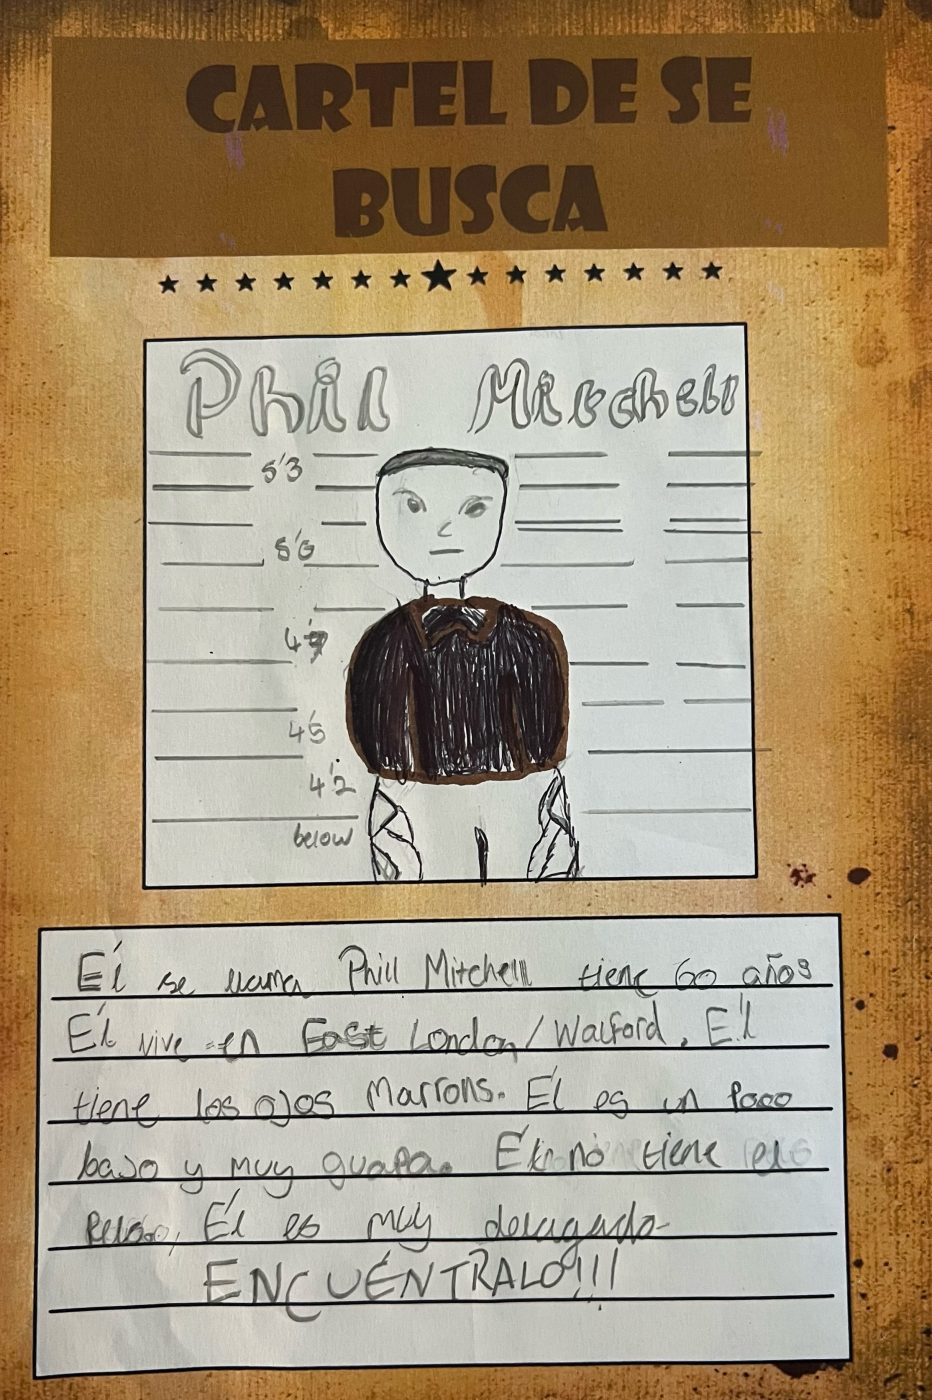 CARTEL DE SE
BUSCA
Phil Mitchell
5'3
5'0
4'
4'5
4'2
below
Él se llama Phill Mitchell tiene 60 años
Él vive en East London/Walford. Él
tiene los ojos Marrons. Él es un Poco
bajo y muy guapa. Él no tiene el
Pelo, Él es muy delagado
ENCUÉNTRALO!!!